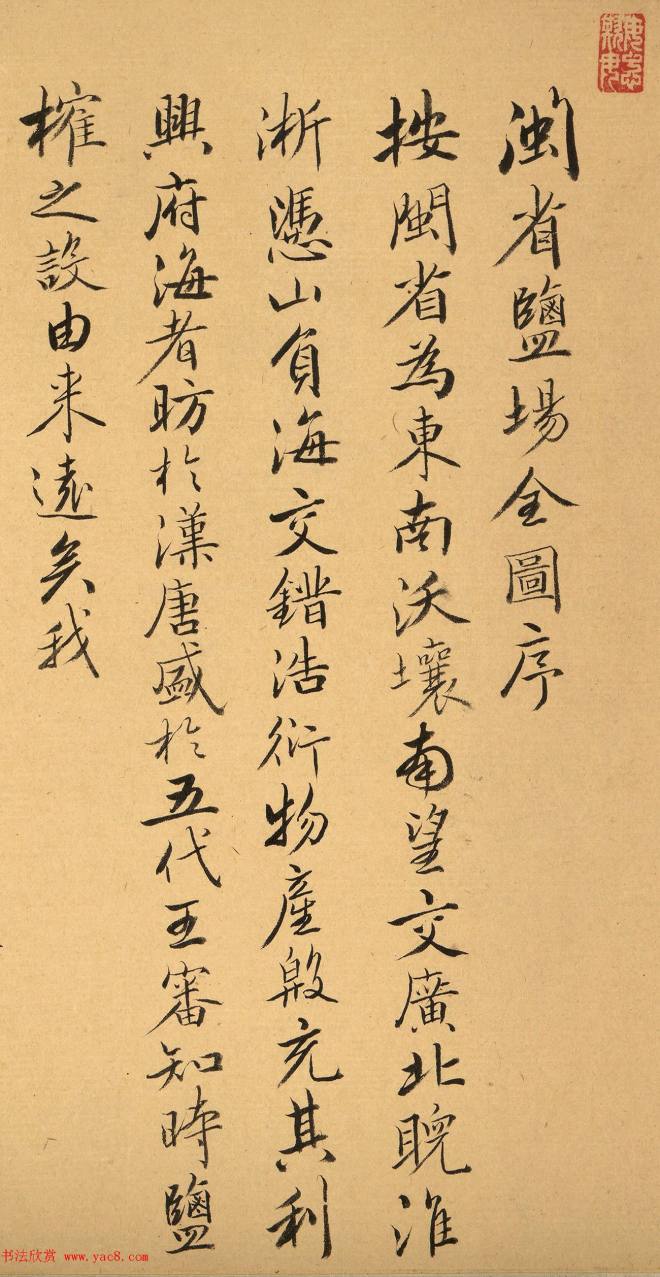 閩省鹽場全圖序
按閩省為東南沃壤南望交廣北睨淮
淅憑山負海交錯浩衍物產殷充其利
興府海者昉於漢唐盛於五代王審知時鹽
榷之設由来遠矣我
书法欣赏 www.yac8.com